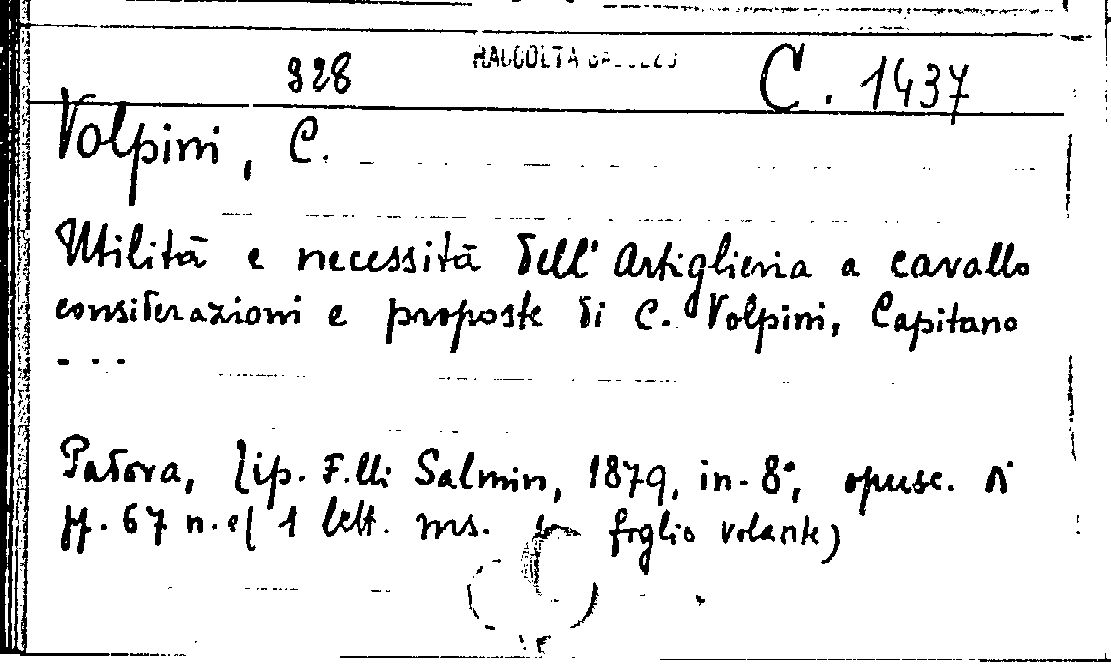 328 RACCOLTA C. 1437
Volpini, C.
Utilità e necessità dell'Artiglieria a cavallo
considerazioni e proposte di C. Volpini, Capitano
- - -
Padova, tip. F.lli Salmin, 1879, in-8°, opusc. di
pp. 67 n. e ( 1 lett. ms. foglio volante)